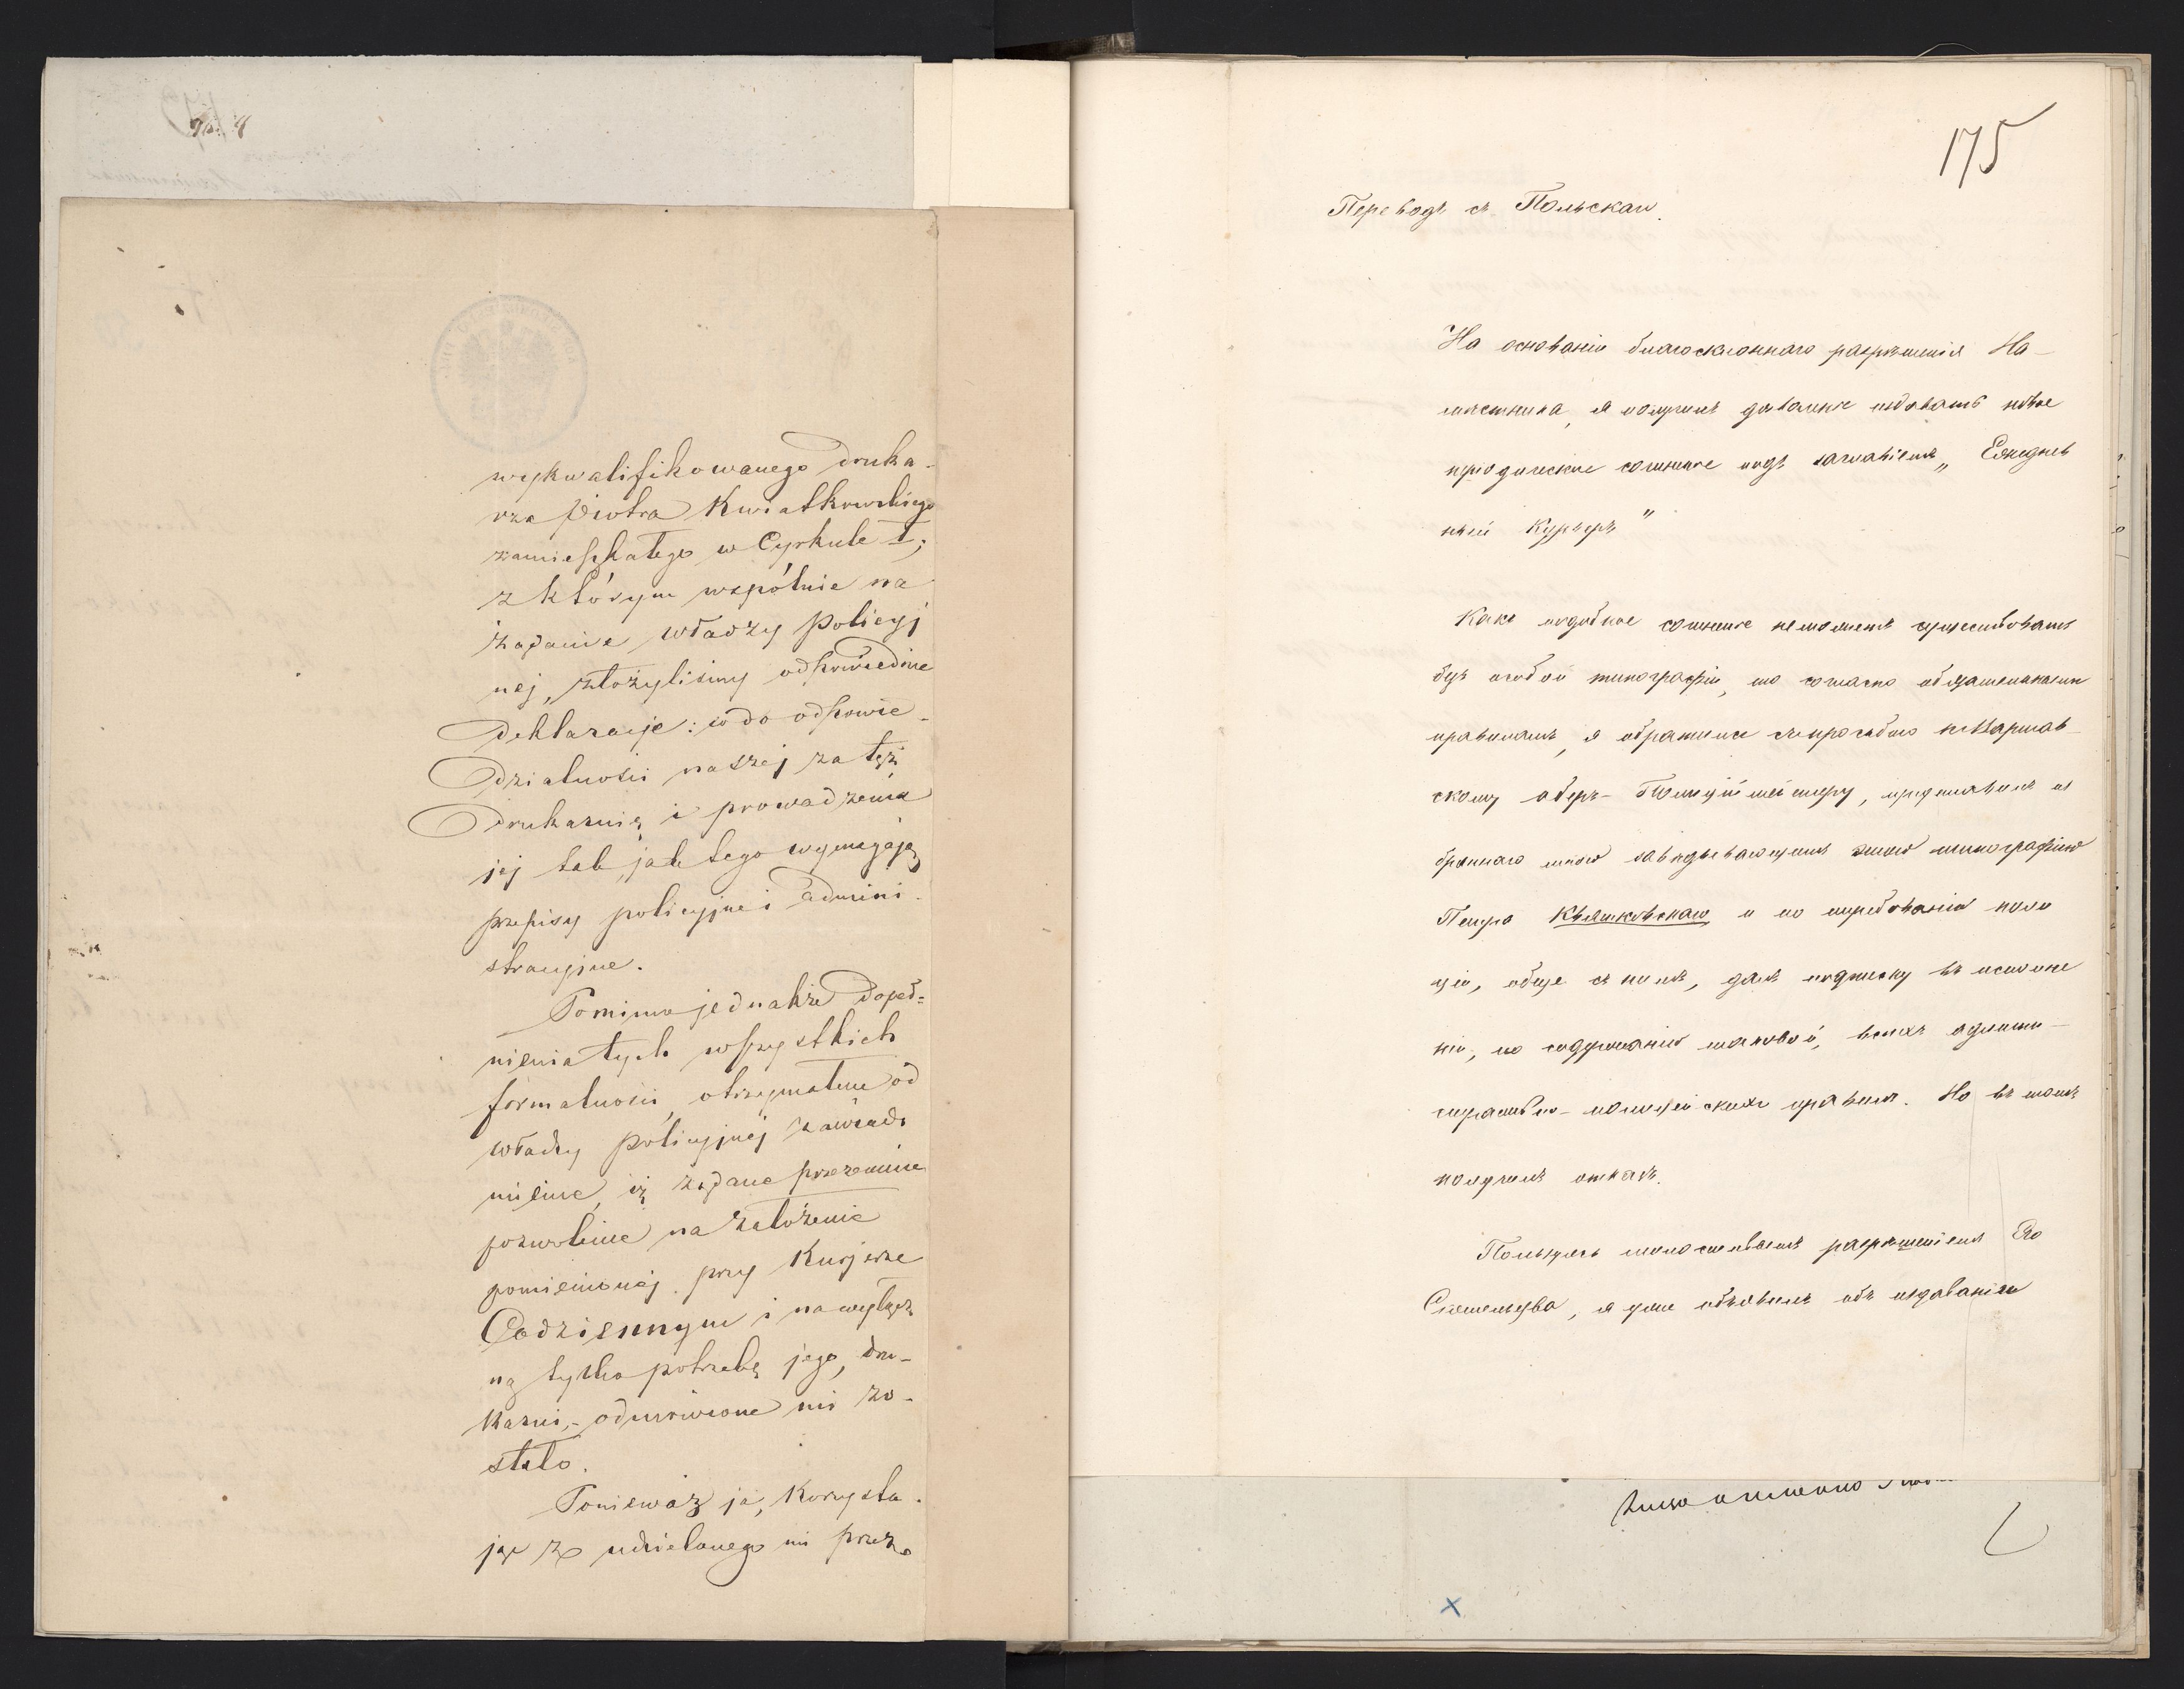 wykwalifikowanego druka-
rza Piotra Kwiatkowskiego
zamieszkałego w Cyrkule I;
z którym wspólnie na
żądanie władzy policyj
nej, złożyliśmy odpowiednie
deklaracje: co do odpowie-
dzialności naszej za tęż
drukarnię i prowadzenia
jej tak, jak tego wymagają
przepisy policyjne i admini-
stracyjne.
Pomimo jednakże dopeł-
nienia tych wszystkich
formalności, otrzymałem od
władzy policyjnej zawiado
mienie, iż żądane przezemnie
pozwolenie na założenie
pomienionej przy Kurjerze
Codziennym i na wyłącz
ną tylko potrzebę jego, dru-
karni,- odmówione mi zo-
stało.
Ponieważ ja, korzysta-
jąc z udzielonego mi przez
175
Переводъ съ Польскаго.
На основаніи благосклоннаго разрѣшенія На-
мѣстника, я получилъ дозволеніе издавать новое
періодическое сочиненіе подъ заглавіемъ „Ежеднев
ный Курьеръ"
Какъ подобное сочиненіе неможетъ существовать
безъ особой типографіи, то согласно обязательнымъ
правиламъ, я обратился съ просьбою къ Варшав-
скому оберъ-Полиціймейстеру, представилъ из
браннаго мною завѣдывающимъ этою типографіею
Петра Квятковскаго и по требованію поли
ціи, обще съ нимъ, далъ подписку въ исполне
ніи, по содержанію таковой, всѣхъ админи-
стративно-полицейскихъ правилъ. Но въ томъ
получилъ отказъ.
Пользуясь милостивымъ разрѣшеніемъ Его
Сіятельства, я уже объявилъ объ издаваніи